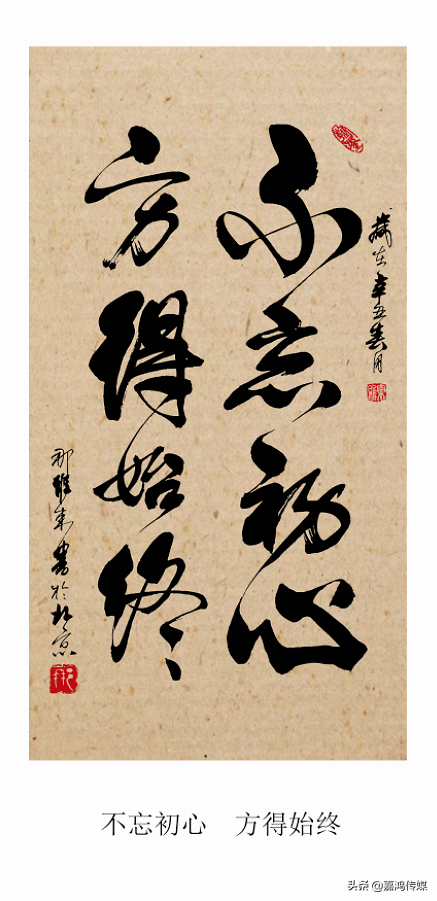 歲在辛丑春月
不忘初心
方得始终
書於北京
不忘初心　方得始终
头条 @嘉鸿传媒